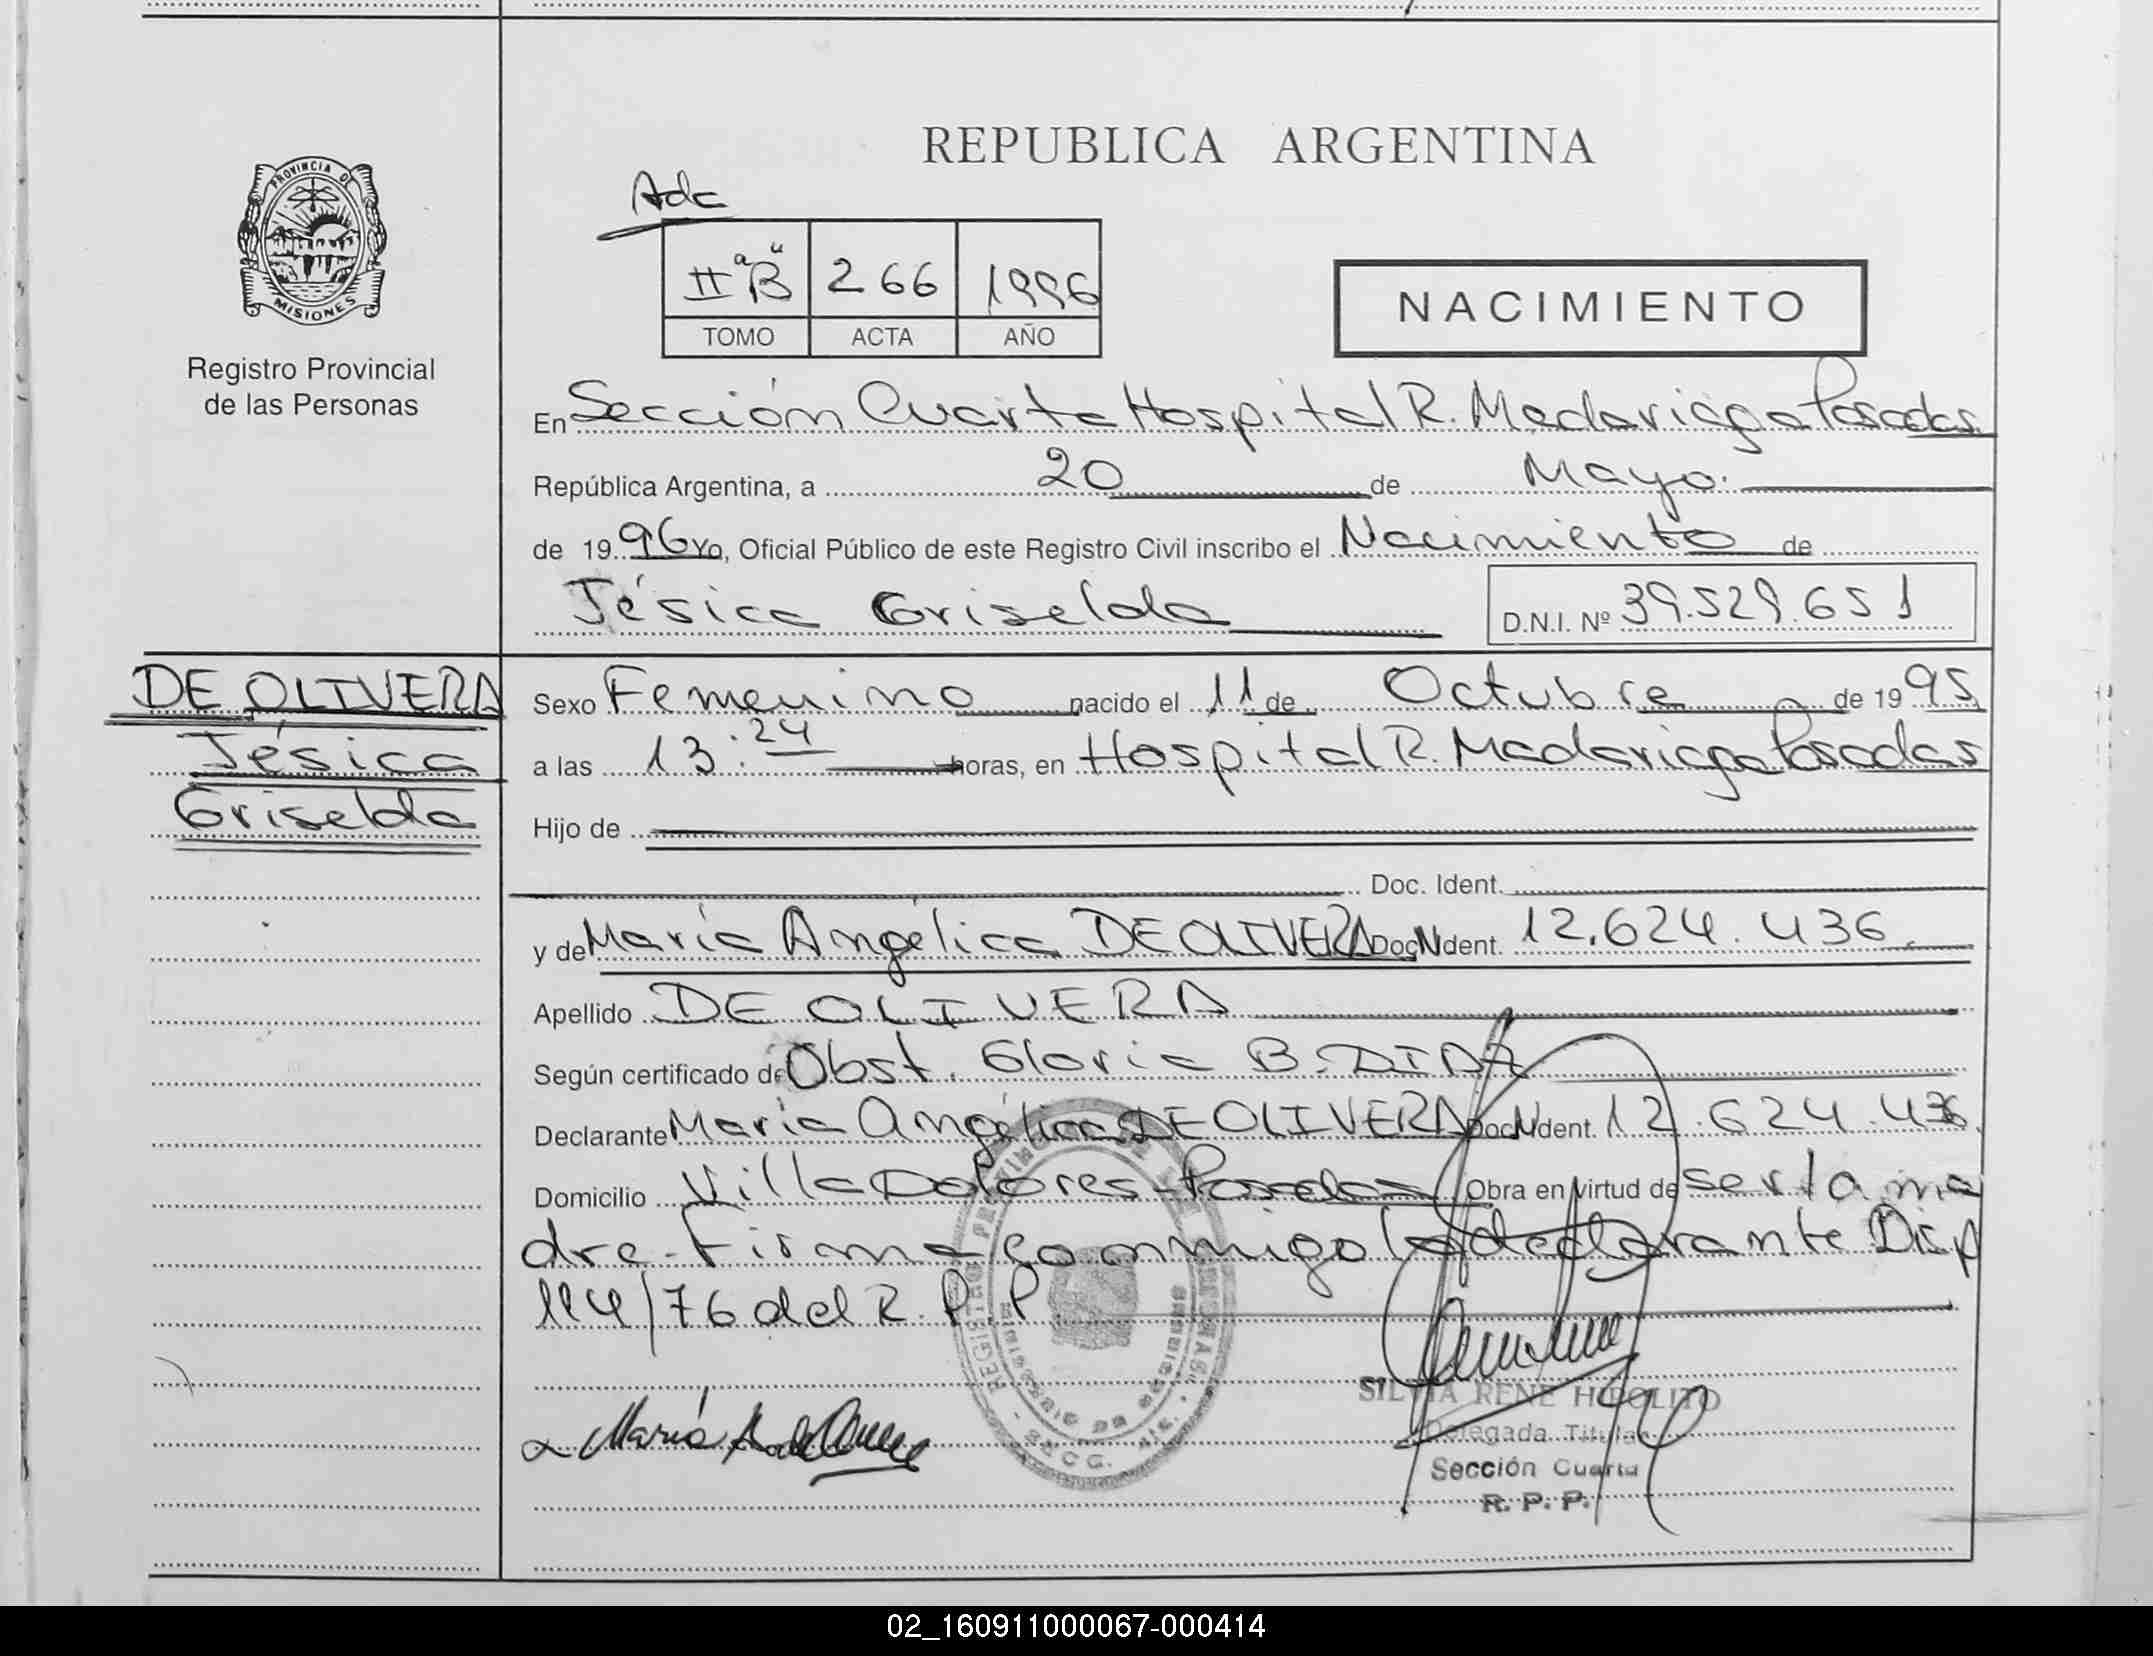 REPUBLICA ARGENTINA
Adc
PROVINCIA DE
MISIONES
IIª "B" 266 1996
TOMO ACTA AÑO
NACIMIENTO
Registro Provincial
de las Personas
En Sección Cuarta Hospital R. Madariaga Posadas.
República Argentina, a 20 de Mayo.
de 1996 yo, Oficial Público de este Registro Civil inscribo el Nacimiento de
Jésica Griselda D.N.I. Nº 39.529.651
DE OLIVERA
Jésica
Griselda
Sexo Femenino nacido el 11 de Octubre de 1995
a las 13:24 horas, en Hospital R. Madariaga Posadas
Hijo de
Doc. Ident.
y de María Angélica DE OLIVERA Doc. Ident. 12.624.436
Apellido DE OLIVERA
Según certificado de Obst. Gloria B. DIAZ
Declarante María Angélica DE OLIVERA Doc. Ident. 12.624.436
Domicilio Villa Dolores - Posadas Obra en virtud de ser la ma
dre. Firma conmigo la declarante Disp
114/76 del R. P. P
María A de
SILVIA RENE HIPOLITO
Delegada Titular
Sección Cuarta
R. P. P.
02_160911000067-000414